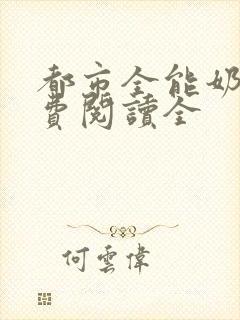 都市全能奶
費閱讀全
何雲偉